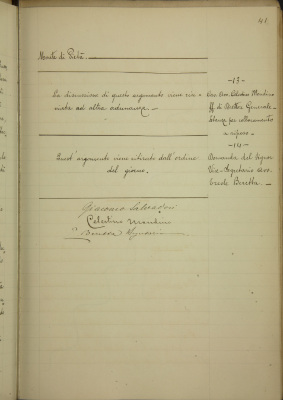 41.
Monte di Pietà.
- 13 -
La discussione di questo argomento viene rin=
viata ad altra adunanza. —
Cav. Avv. Celestino Mandirino
ff. di Direttore Generale.
Istanza per collocamento
a riposo. —
- 14 -
Quest'argomento viene ritirato dall'ordine
del giorno.
Domanda del Signor
Vice-Segretario
Beretta. —
Giacomo Salvadori
Celestino